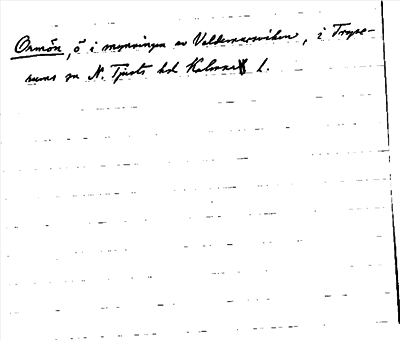 Ormön, ö i mynningen av Valdemarsviken, i Tryse-
rums sn N. Tjusts hd Kalmar l.